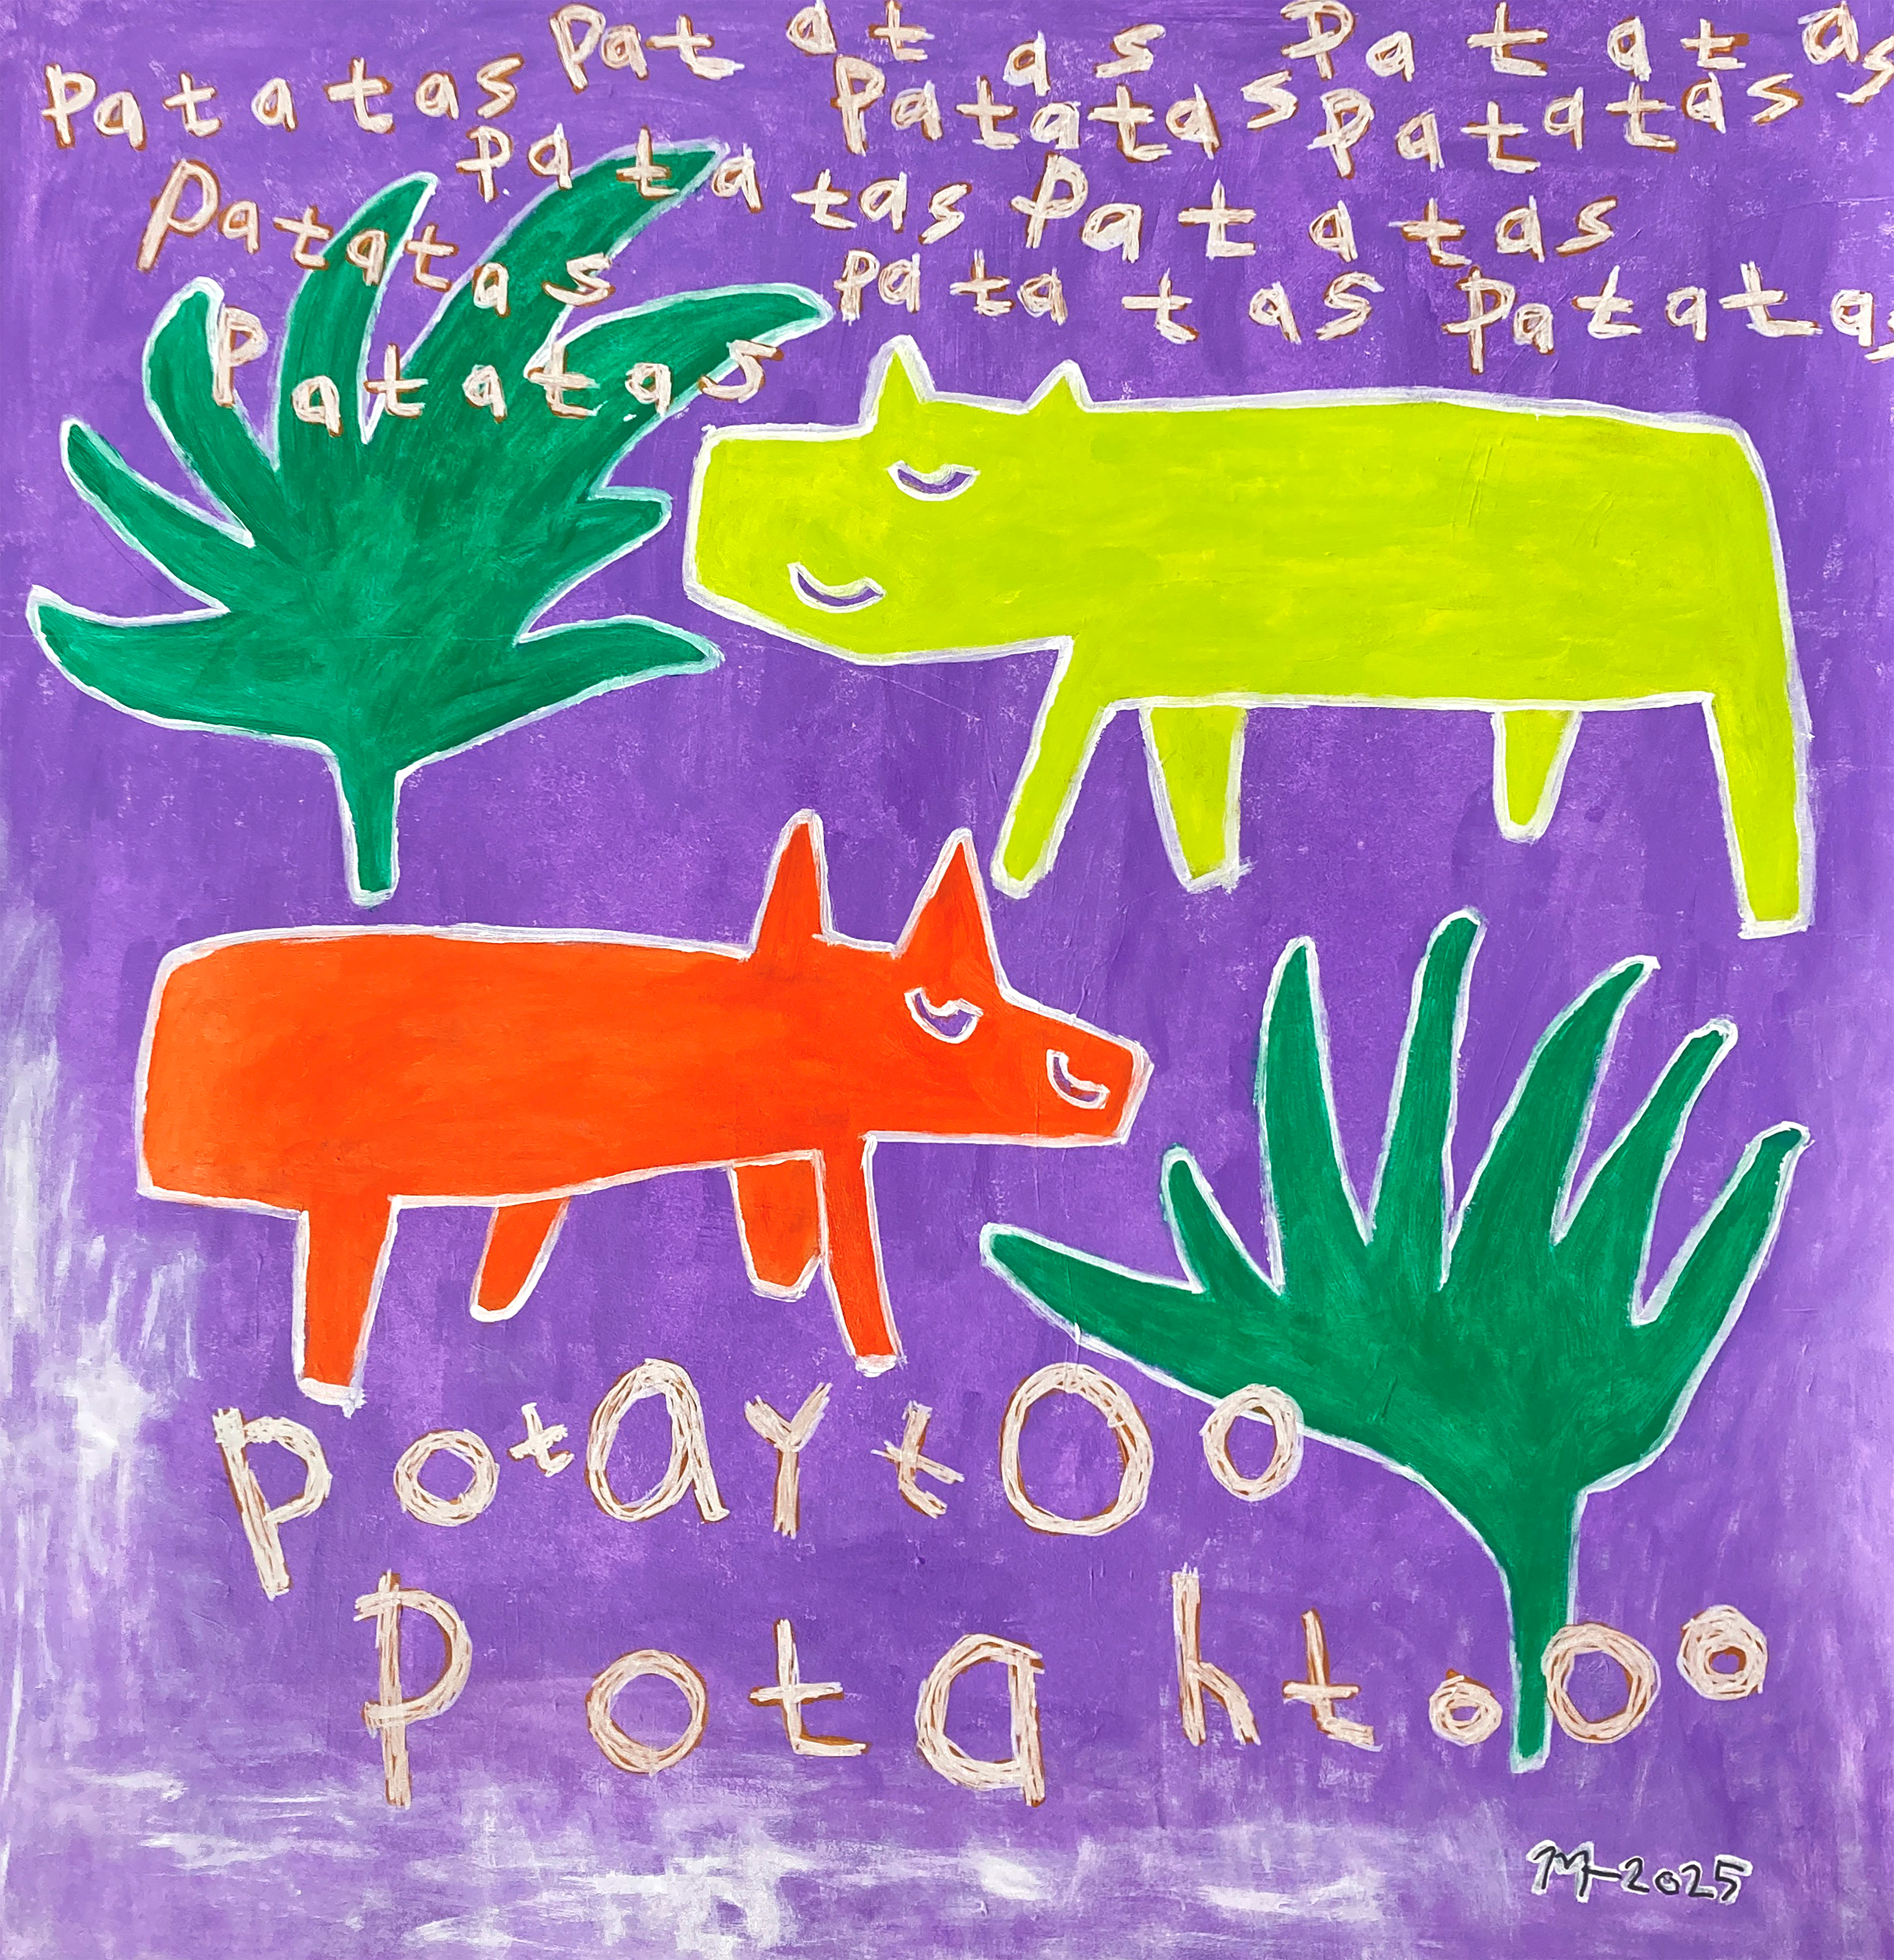 Patatas Patatas Patatas
Patatas Patatas
Patatas Patatas
Patatas
Patatas Patatas
Patatas
potaytOo
Potahtooo
2025